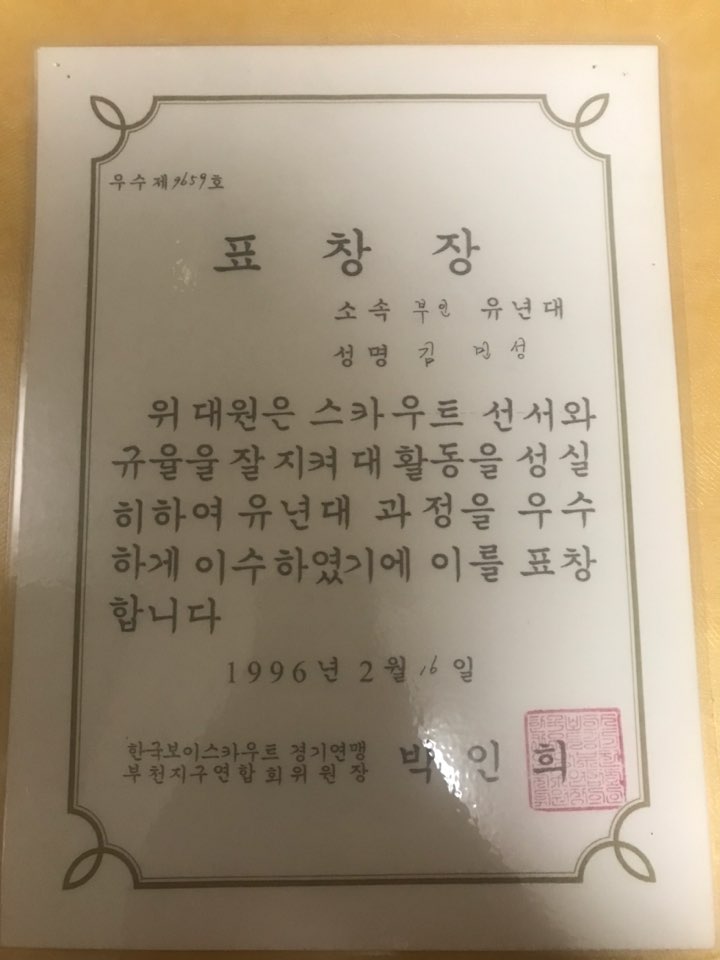 우수 제9659호
표 창 장
소속 부인 유년대
성명 김 민성
위 대원은 스카우트 선서와
규율을 잘 지켜 대 활동을 성실
히하여 유년대 과정을 우수
하게 이수하였기에 이를 표창
합니다
1996년 2월 16일
한국보이스카우트 경기연맹
부천지구연합회위원장 박인희